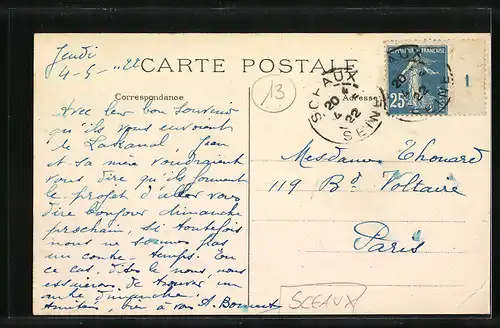 Jeudi
4-5-22
CARTE POSTALE
Correspondance
Adresse
13
SCEAUX
20
4-5
22
SEINE
REPUBLIQUE FRANÇAISE
25
1
Avec leur bon souvenir
qu'ils vous envoient
le Lakanal, Jean
et sa mère voudraient
vous dire qu'ils forment
le projet d'aller vous
dire bonjour dimanche
prochain, si toutefois
nous ne sommes pas
un contre-temps. En
ce cas, dites le nous, nous
essaierons de trouver un
autre dimanche.
Amitiés, bien à vous A.
Mesdames Thouard
119 Bd Voltaire
Paris
SCEAUX